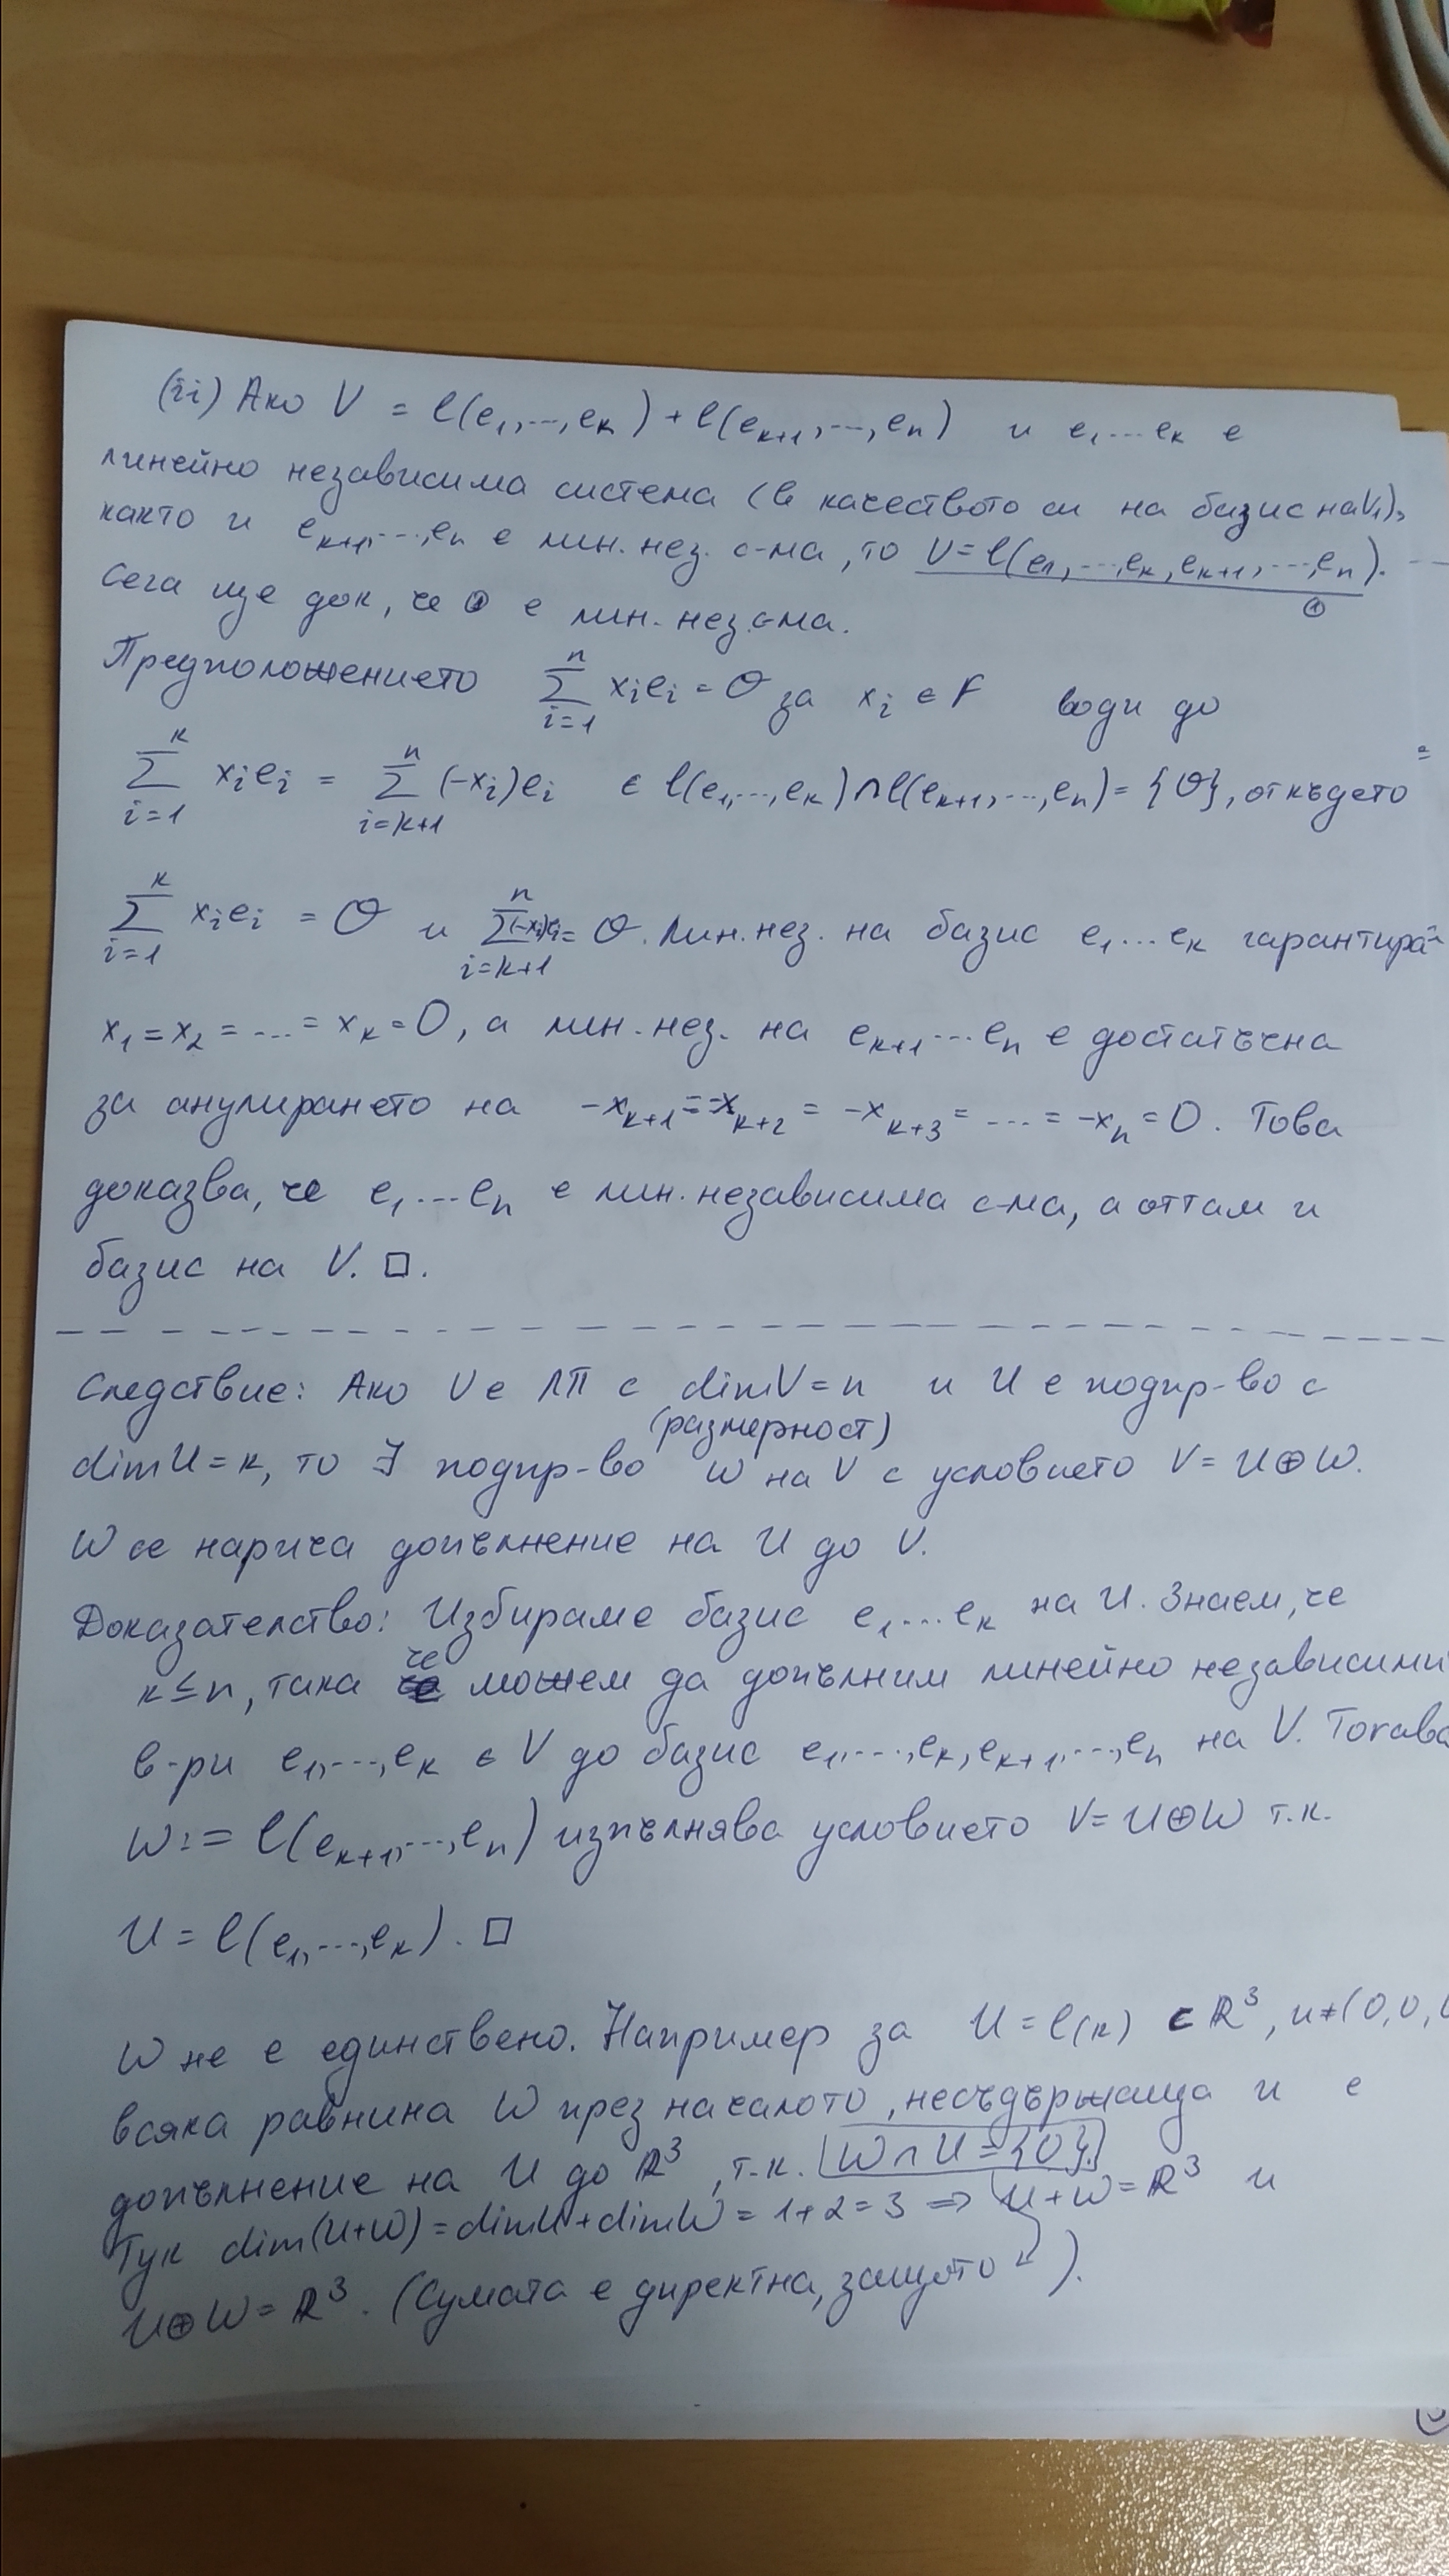 (ii) Ако V = l(e₁,...,eₖ) + l(eₖ₊₁,...,eₙ) и e₁...eₖ е
линейно независима система (в качеството си на базис на V₁),
както и eₖ₊₁,...,eₙ е лин. нез. с-ма, то V = l(e₁,...,eₖ,eₖ₊₁,...,eₙ).
①
Сега ще док, че ① е лин. нез. с-ма.
Предположението ∑ᵢ₌₁ⁿ xᵢeᵢ = O за xᵢ ∈ F води до
∑ᵢ₌₁ᵏ xᵢeᵢ = ∑ᵢ₌ₖ₊₁ⁿ (-xᵢ)eᵢ ∈ l(e₁,...,eₖ)∩l(eₖ₊₁,...,eₙ) = {O}, откъдето
∑ᵢ₌₁ᵏ xᵢeᵢ = O и ∑ᵢ₌ₖ₊₁ⁿ (-xᵢ)eᵢ = O. Лин. нез. на базис e₁...eₖ гарантира
x₁ = x₂ = ... = xₖ = 0, а лин. нез. на eₖ₊₁...eₙ е достатъчна
за анулирането на -xₖ₊₁ = -xₖ₊₂ = -xₖ₊₃ = ... = -xₙ = 0. Това
доказва, че e₁...eₙ е лин. независима с-ма, а оттам и
базис на V. □.
Следствие: Ако V е ЛП с dimV = n и U е подпр-во с
(размерност)
dimU = k, то ∃ подпр-во W на V с условието V = U⊕W.
W се нарича допълнение на U до V.
Доказателство: Избираме базис e₁...eₖ на U. Знаем, че
k ≤ n, така че можем да допълним линейно независими
в-ри e₁,...,eₖ ∈ V до базис e₁,...,eₖ,eₖ₊₁,...,eₙ на V. Тогава
W := l(eₖ₊₁,...,eₙ) изпълнява условието V = U⊕W т.к.
U = l(e₁,...,eₖ). □
W не е единствено. Например за U = l(u) ⊂ ℝ³, u≠(0,0,
всяка равнина W през началото, несъдържаща u е
допълнение на U до ℝ³, т.к. W∩U = {O}.
Тук dim(U+W) = dimU + dimW = 1+2 = 3 ⇒ U+W = ℝ³ и
U⊕W = ℝ³. (Сумата е директна, защото ).